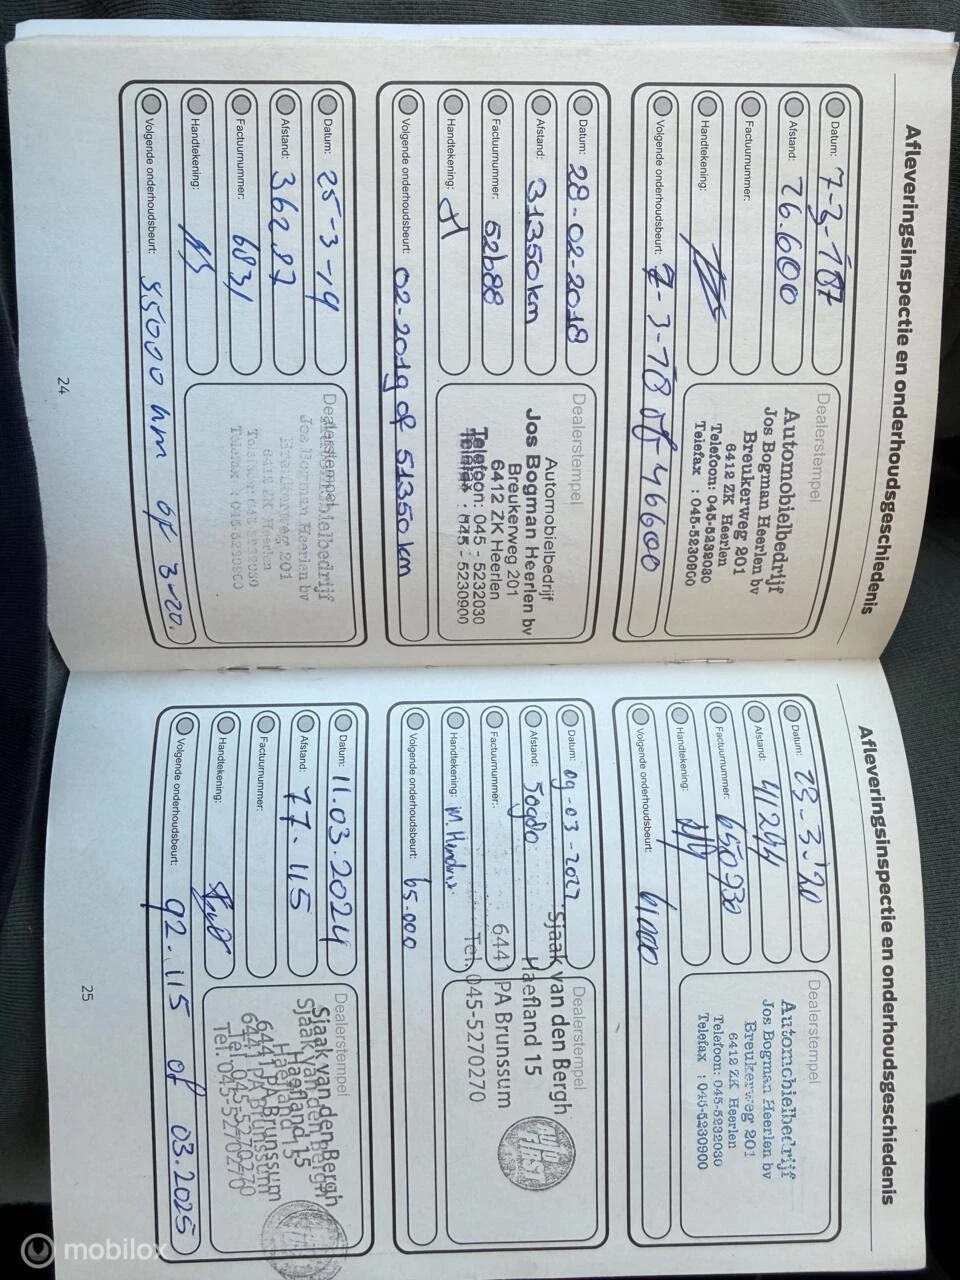 Afleveringsinspectie en onderhoudsgeschiedenis
Datum: 7-3-'187
Afstand: 26.600
Factuurnummer:
Handtekening:
Volgende onderhoudsbeurt: 7-3-'18 of 46600
Dealerstempel
Automobielbedrijf
Jos Bogman Heerlen bv
Breukerweg 201
6412 ZK Heerlen
Telefoon: 045-5232030
Telefax : 045-5230900
Datum: 28-02-2018
Afstand: 31350km
Factuurnummer: 52688
Handtekening:
Volgende onderhoudsbeurt: 02-2019 of 51350km
Dealerstempel
Automobielbedrijf
Jos Bogman Heerlen bv
Breukerweg 201
6412 ZK Heerlen
Telefoon: 045 - 5232030
Telefax : 045 - 5230900
Datum: 25-3-19
Afstand: 36287
Factuurnummer: 6831
Handtekening:
Volgende onderhoudsbeurt: 55000 km of 3-20.
Dealerstempel
Automobielbedrijf
Jos Bogman Heerlen bv
Breukerweg 201
6412 ZK Heerlen
Telefoon: 045-5232030
Telefax : 045-5230900
24
Afleveringsinspectie en onderhoudsgeschiedenis
Datum: 23-3-'20
Afstand: 41244
Factuurnummer: 650930
Handtekening:
Volgende onderhoudsbeurt: 61000
Dealerstempel
Automobielbedrijf
Jos Bogman Heerlen bv
Breukerweg 201
6412 ZK Heerlen
Telefoon: 045-5232030
Telefax : 045-5230900
Datum: 09-03-2022
Afstand: 50980
Factuurnummer:
Handtekening: M. Hendrix
Volgende onderhoudsbeurt: 65.000
Dealerstempel
Sjaak van den Bergh
Haefland 15
6441 PA Brunssum
Tel. 045-5270270
AUTO FIRST
Datum: 11.03.2024
Afstand: 77.115
Factuurnummer:
Handtekening:
Volgende onderhoudsbeurt: 92.115 of 03.2025
Dealerstempel
Sjaak van den Bergh
Haefland 15
6441 PA Brunssum
Tel. 045-5270270
25
mobilox